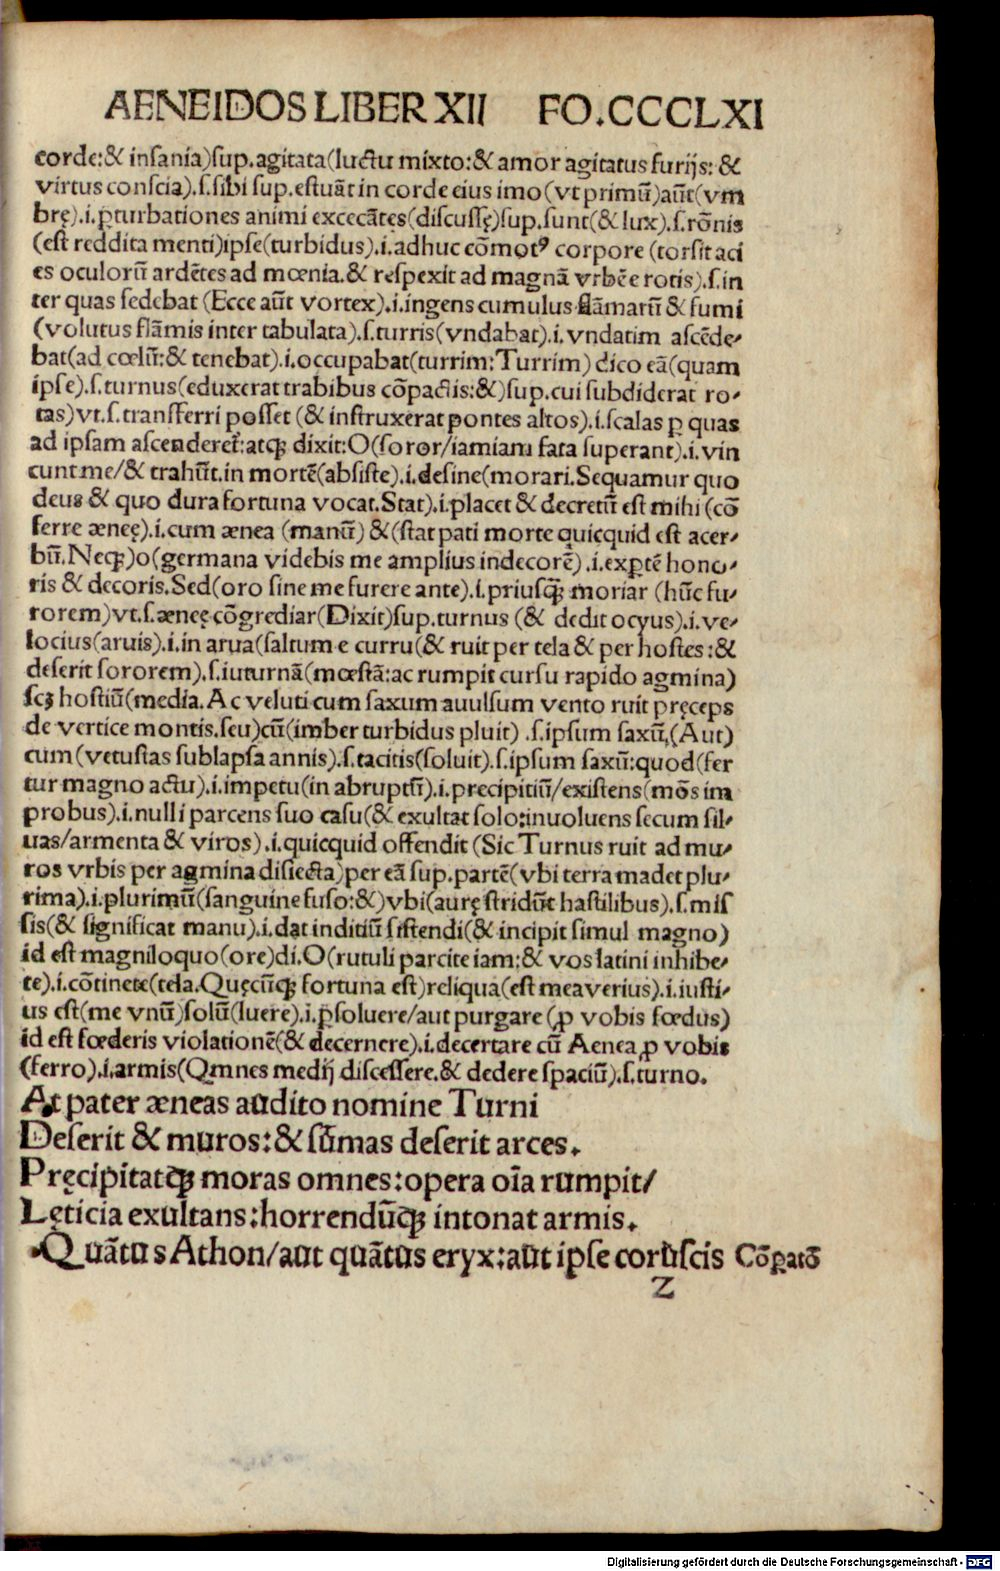 AENEIDOS LIBER XII FO.CCCLXI
corde:& insania)sup.agitata(luctu mixto:& amor agitatus furijs: &
virtus conscia).s.sibi sup.estuāt in corde eius imo(vt primū)aūt(vm
brę).i.ꝑturbationes animi excecātes(discussę)sup.sunt(& lux).s.rōnis
(est reddita menti)ipse(turbidus).i.adhuc cōmotꝰ corpore (torsit aci
es oculorū ardētes ad mœnia.& respexit ad magnā vrbē e rotis).s.in
ter quas sedebat (Ecce aūt vortex).i.ingens cumulus flāmarū & fumi
(volutus flāmis inter tabulata).s.turris(vndabat).i.vndatim ascēde-
bat(ad cœlū:& tenebat).i.occupabat(turrim:Turrim) dico eā(quam
ipse).s.turnus(eduxerat trabibus cōpactis:&)sup.cui subdiderat ro-
tas)vt.s.transferri posset (& instruxerat pontes altos).i.scalas ꝑ quas
ad ipsam ascenderet̄:atqꝫ dixit:O(soror/iamiam fata superant).i.vin
cunt me/& trahūt.in mortē(absiste).i.desine(morari.Sequamur quo
deus & quo dura fortuna vocat.Stat).i.placet & decretū est mihi (cō
ferre ænęę).i.cum ænea (manū) &(stat pati morte quicquid est acer-
bū.Neqꝫ)o(germana videbis me amplius indecorē) .i.exꝑtē hono-
ris & decoris.Sed(oro sine me furere ante).i.priusqꝫ moriar (hūc fu-
rorem)vt.s.æneę cōgrediar(Dixit)sup.turnus (& dedit ocyus).i.ve-
locius(aruis).i.in arua(saltum e curru(& ruit per tela & per hostes:&
deserit sororem).s.iuturnā(mœstā:ac rumpit cursu rapido agmina)
scꝫ hostiū(media.Ac veluti cum saxum auulsum vento ruit pręceps
de vertice montis.seu)cū(imber turbidus pluit) .s.ipsum saxū,(Aut)
cum(vetustas sublapsa annis).s.tacitis(soluit).s.ipsum saxū:quod(fer
tur magno actu).i.impetu(in abruptū).i.precipitiū/existens(mōs im
probus).i.nulli parcens suo casu(& exultat solo:inuoluens secum sil-
uas/armenta & viros).i.quicquid offendit (Sic Turnus ruit ad mu-
ros vrbis per agmina disiecta)per eā sup.partē(vbi terra madet plu-
rima).i.plurimū(sanguine fuso:&)vbi(aurę stridūt hastilibus).s.mis
sis(& significat manu).i.dat inditiū sistendi(& incipit simul magno)
id est magniloquo(ore)di.O(rutuli parcite iam:& vos latini inhibe-
te).i.cōtinete(tela.Quęcūqꝫ fortuna est)reliqua(est mea verius).i.iusti-
us est(me vnū)solū(luere).i.ꝑsoluere/aut purgare(ꝓ vobis fœdus)
id est fœderis violationē(& decernere).i.decertare cū Aenea ꝓ vobis
(ferro).i.armis(Omnes medij discessere.& dedere spaciū).s.turno.
At pater æneas audito nomine Turni
Deserit & muros:& sūmas deserit arces.
Pręcipitatqꝫ moras omnes:opera oīa rumpit/
Lęticia exultans:horrendūqꝫ intonat armis.
Quātus Athon/aut quātus eryx:aut ipse coruscis Cōꝑatō
Z
Digitalisierung gefördert durch die Deutsche Forschungsgemeinschaft - DFG